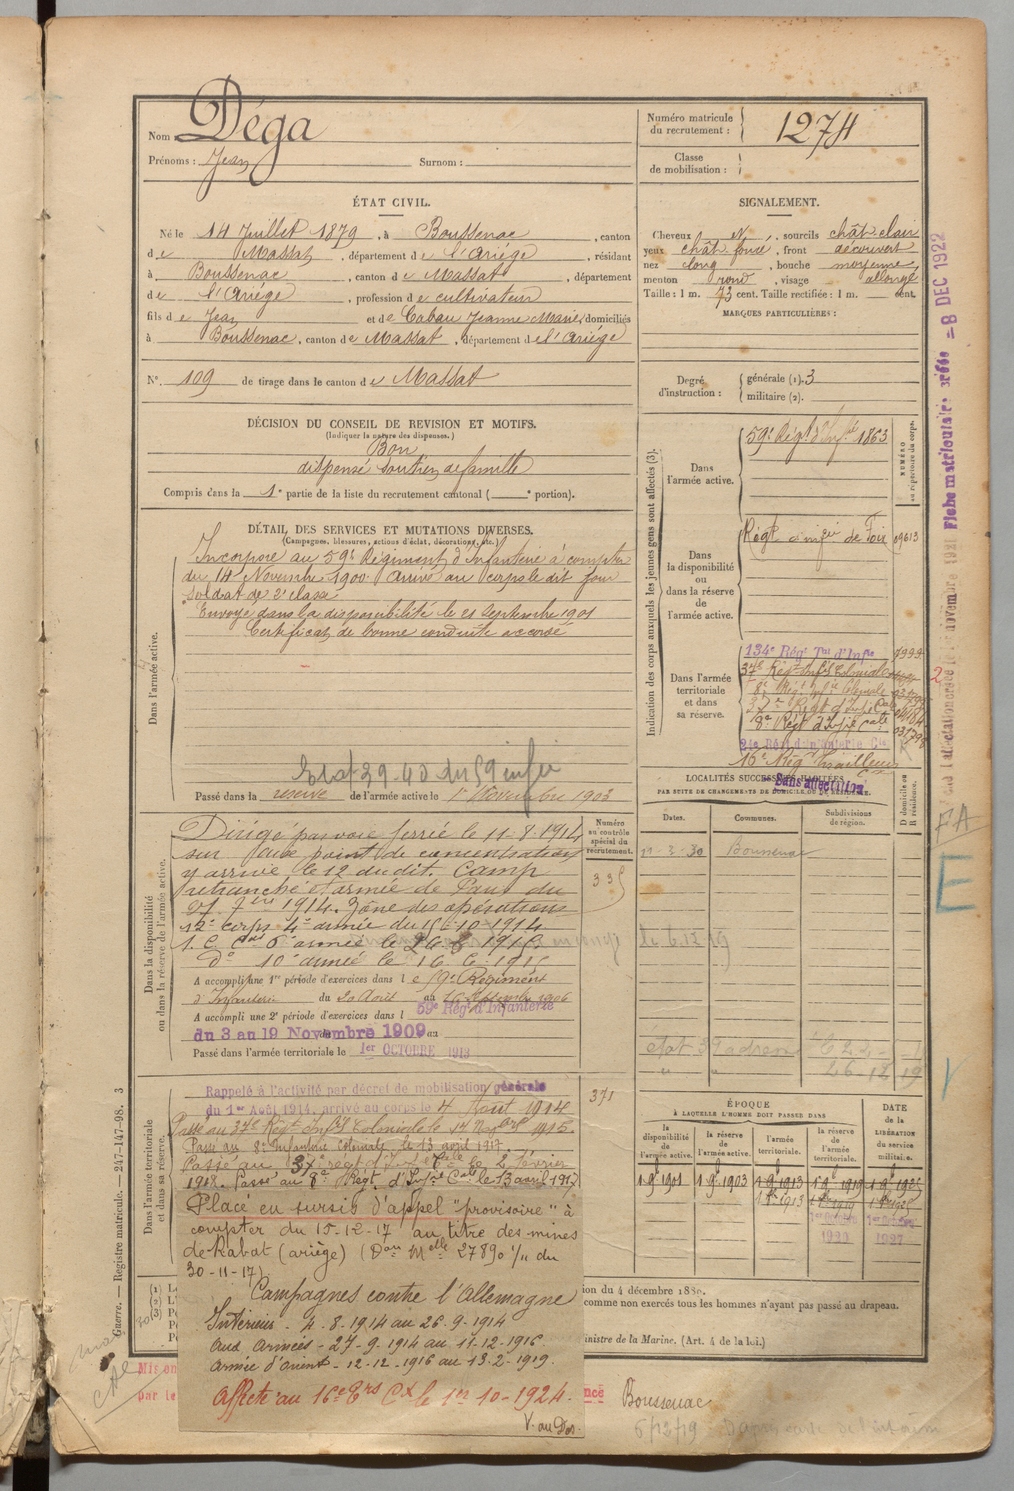 Nom Déga
Prénoms : Jean Surnom :
Numéro matricule du recrutement : 1274
Classe de mobilisation :
ÉTAT CIVIL.
Né le 14 Juillet 1879, à Boussenac, canton
de Massat, département de l'Ariége, résidant
à Boussenac, canton de Massat, département
de l'Ariége, profession de cultivateur
fils de Jean et de Cabau Jeanne Marie, domiciliés
à Boussenac, canton de Massat, département de l'Ariége
N° 109 de tirage dans le canton de Massat
SIGNALEMENT.
Cheveux N, sourcils chât clair
yeux chât foncé, front découvert
nez long, bouche moyenne
menton rond, visage allongé
Taille : 1 m. 73 cent. Taille rectifiée : 1 m. cent.
MARQUES PARTICULIÈRES :
Degré d'instruction : générale (1). 3
militaire (2).
DÉCISION DU CONSEIL DE REVISION ET MOTIFS.
(Indiquer la nature des dispenses.)
Bon
dispensé soutien de famille
Compris dans la 1e partie de la liste du recrutement cantonal ( e portion).
DÉTAIL DES SERVICES ET MUTATIONS DIVERSES.
(Campagnes, blessures, actions d'éclat, décorations, etc.)
Dans l'armée active.
Incorporé au 59e Régiment d'Infanterie à compter
du 14 Novembre 1900. Arrivé au corps le dit jour
soldat de 2e classe
Envoyé dans la disponibilité le 21 Septembre 1901
Certificat de bonne conduite accordé
Etat 39-40 du 59 infie
Passé dans la réserve de l'armée active le 1er Novembre 1903
Indication des corps auxquels les jeunes gens sont affectés (3).
NUMÉRO au répertoire du corps.
Dans l'armée active.
59e Régt d'Infie 1863
Dans la disponibilité ou dans la réserve de l'armée active.
Régt d'infie de Foix 09613
Dans l'armée territoriale et dans sa réserve.
134e Régt Tal d'Infie 7999
37e Régt Infie Coloniale
8e Régt Infie Coloniale
37e Régt d'Infie Cale
8e Régt d'Infie Cale
16e Régt Tirailleurs
Sans affectation
LOCALITÉS SUCCESSIVES HABITÉES
PAR SUITE DE CHANGEMENTS DE DOMICILE OU DE RÉSIDENCE.
Dates. Communes. Subdivisions de région. D domicile ou R résidence.
11-3-30 Boussenac
le 6.12.19
Dans la disponibilité ou dans la réserve de l'armée active.
Numéro au contrôle spécial du recrutement.
335
Dirigé par voie ferrée le 11-8-1914
sur point de concentration
y arrivé le 12 du dit. Camp
retranché d'armée de Paris du
1914. Zône des opérations
12e corps 4e armée du 15-10-1914
do 10e armée le 16-6-1915
A accompli une 1re période d'exercices dans le 59e Régiment
d'Infanterie du 20 Août au 16 Septembre 1906
A accompli une 2e période d'exercices dans l 59e Régt d'Infanterie
du 3 au 19 Novembre 1909 au
Passé dans l'armée territoriale le 1er OCTOBRE 1913
Dans l'armée territoriale et dans sa réserve.
371
Rappelé à l'activité par décret de mobilisation générale
du 1er Août 1914, arrivé au corps le 4 Août 1914
Passé au 37e Régt Infie Coloniale le 14 Novbre 1916.
Passé au 8e Infanterie Coloniale le 13 avril 1917
Passé au 37e régt d'Infie Cale le 2 février
1918. Passé au 8e Régt d'Infie Cale le 13 avril 1917
Placé en sursis d'appel "provisoire" à
compter du 15-12-17 au titre des mines
de Rabat (ariège) (Don Melle 27890 1/11 du
30-11-17)
Campagnes contre l'Allemagne
Intérieur - 4-8-1914 au 26-9-1914
aux armées - 27-9-1914 au 11-12-1916
armée d'orient - 12-12-1916 au 13-2-1919.
Affecté au 16e Ers Cx le 1er 10-1924.
V. au Dos.
ÉPOQUE
À LAQUELLE L'HOMME DOIT PASSER DANS
DATE DE LA LIBÉRATION du service militaire.
la disponibilité de l'armée active. la réserve de l'armée active. l'armée territoriale. la réserve de l'armée territoriale.
1 9e 1901 1 9e 1903 1 9e 1913 1 9e 1919 1 9e 1925
1920 1927
ion du 4 décembre 1889.
comme non exercés tous les hommes n'ayant pas passé au drapeau.
inistre de la Marine. (Art. 4 de la loi.)
Mis en
par le
Boussenac
6/12/19
Guerre. — Registre matricule. — 247-147-98. 3
Fiche matriculaire créée - 8 DEC 1922
FA
E